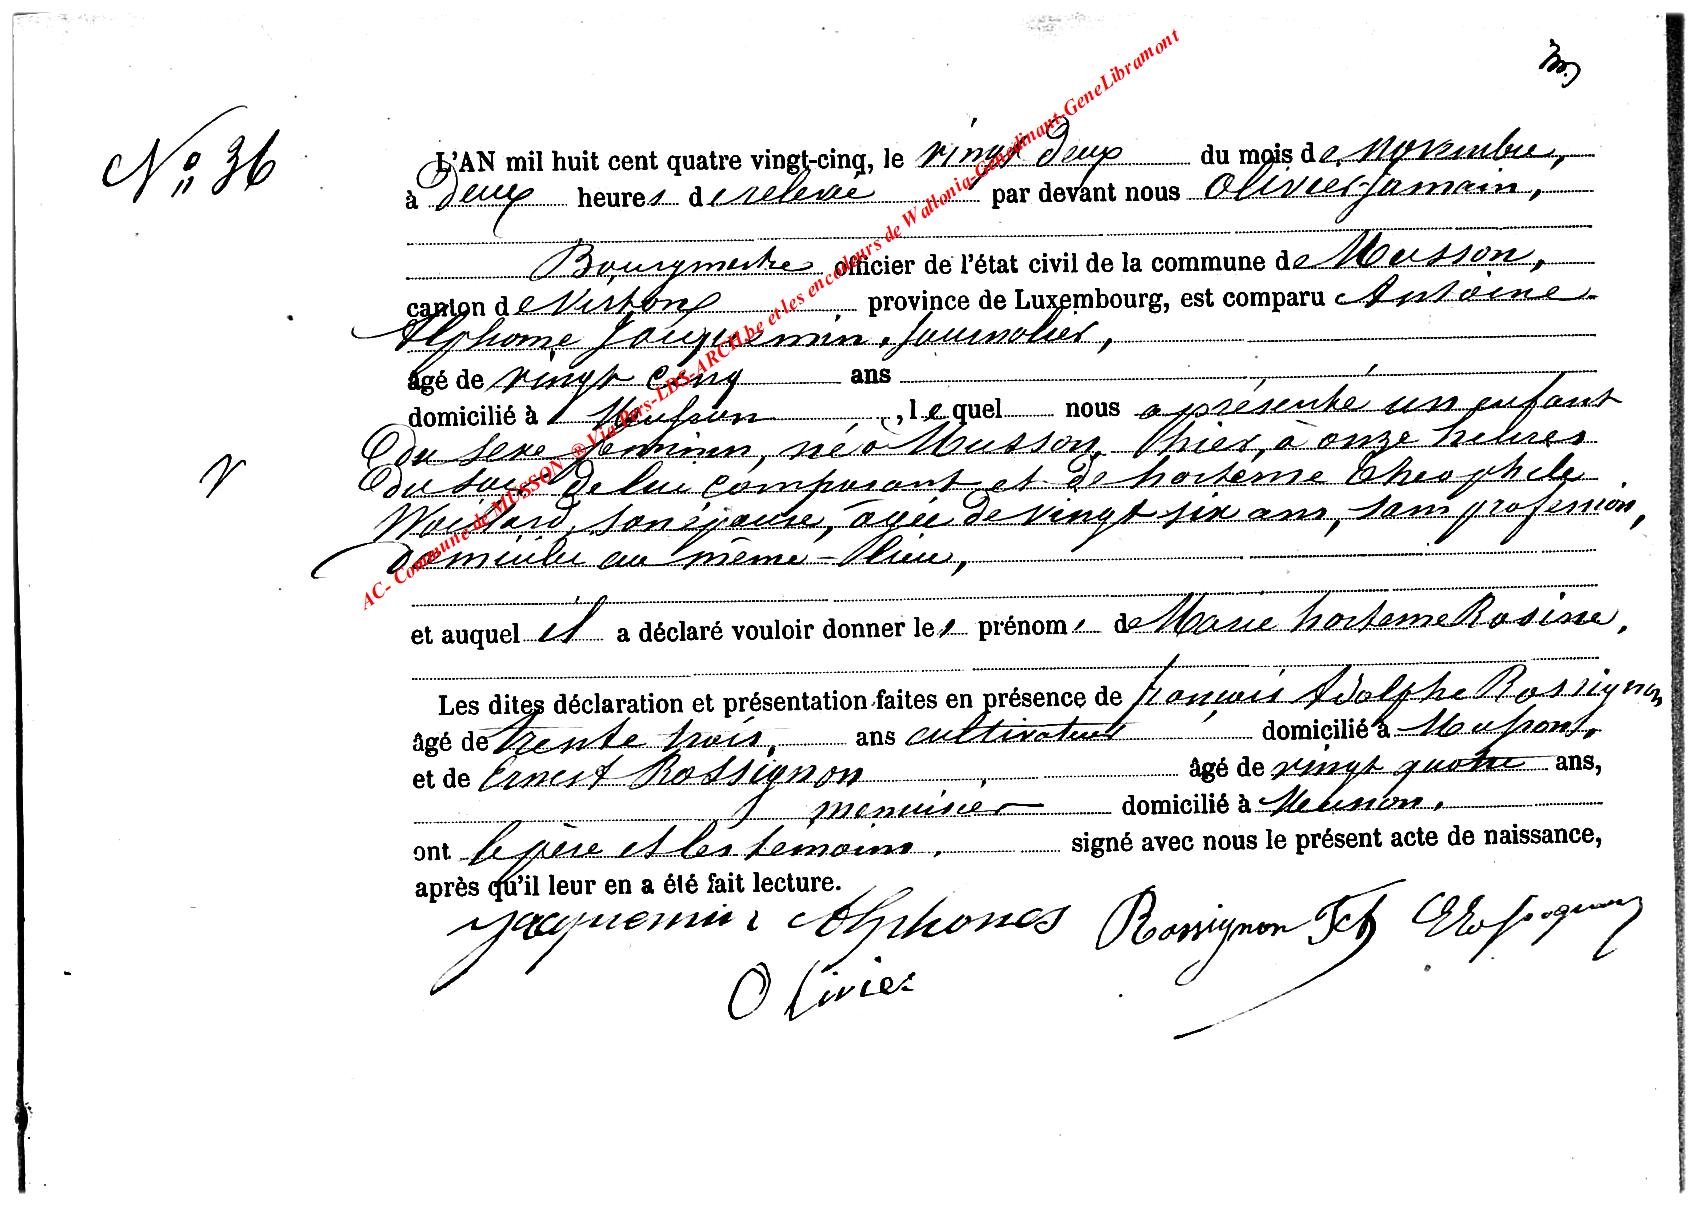 N° 36
L'AN mil huit cent quatre vingt-cinq, le vingt deux du mois de novembre,
à deux heures de relevée par devant nous Olivier Jamain,
Bourgmestre officier de l'état civil de la commune de Musson,
canton de Virton province de Luxembourg, est comparu Antoine
Alphonse Jacquemin, journalier,
âgé de vingt cinq ans
domicilié à Musson, lequel nous a présenté un enfant
du sexe féminin, né à Musson, hier, à onze heures
du soir de lui comparant et de hortense Théophile
son épouse, âgée de vingt six ans, sans profession,
domiciliée au même lieu,
et auquel il a déclaré vouloir donner les prénoms de Marie hortense Rosine,
Les dites déclaration et présentation faites en présence de françois Adolphe Rossignon
âgé de trente trois, ans cultivateur domicilié à Musson,
et de Ernest Rossignon âgé de vingt quatre ans,
menuisier domicilié à Musson.
ont le père et les témoins, signé avec nous le présent acte de naissance,
après qu'il leur en a été fait lecture.
Jacquemin Alphonse Rossignon
Olivier
AC- Commune de MUSSON ® Via Pers-LDS-ARCH.be et les encodeurs de Wallonia-Genedinant-GeneLibramont